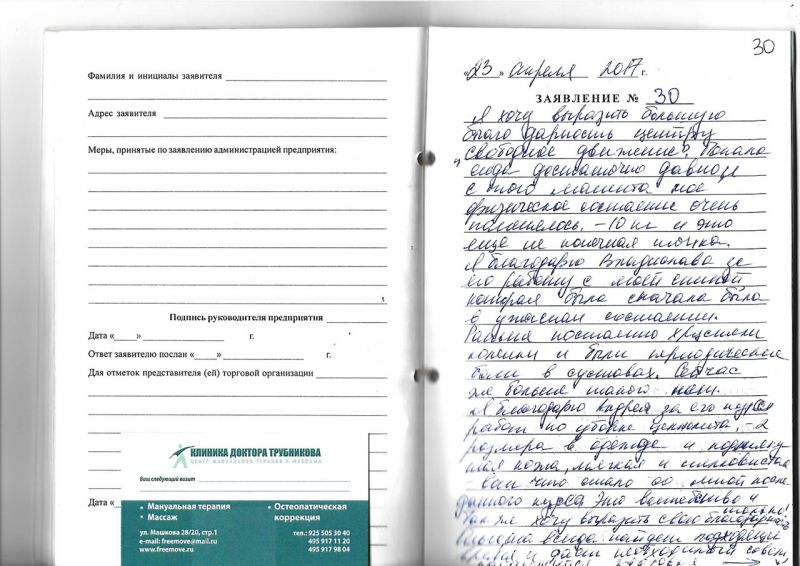 Фамилия и инициалы заявителя
Адрес заявителя
Меры, принятые по заявлению администрацией предприятия:
Подпись руководителя предприятия
Дата «____» г.
Ответ заявителю послан «____» г.
Для отметок представителя (ей) торговой организации
Дата «
КЛИНИКА ДОКТОРА ТРУБНИКОВА
ЦЕНТР МАНУАЛЬНОЙ ТЕРАПИИ И МАССАЖА
Ваш следующий визит
• Мануальная терапия
• Массаж
• Остеопатическая
коррекция
ул. Машкова 28/20, стр.1
e-mail: freemove@mail.ru
www.freemove.ru
тел.: 925 505 30 40
495 917 11 20
495 917 98 04
30
«23» апреля 2017 г.
ЗАЯВЛЕНИЕ № 30
Я хочу выразить большую
благодарность центру
"Свободное движение". Попала
сюда достаточно давно и
с того момента мое
физическое состояние очень
-10 кг и это
еще не конечная точка.
Я благодарю Владислава за
его работу с моей спиной
которая была сначала была
в ужасном состоянии.
Раньше постоянно хрустели
и были периодические
боли в суставах. Сейчас
же больше такого нет.
Я благодарю Андрея за его курсы
работ по убовке целлюлита, 2
размера в одежде и подтянутая
кожа, мягкая и шелковистая
- вот что стало со мной после
данного курса. Это волшебство и
только!
Так же хочу выразить свою благодарность
всегда найдет подходящее
время и даст необходимый совет,